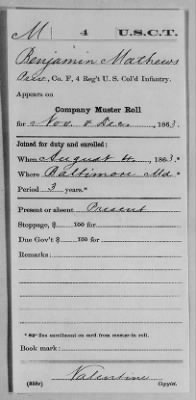 M | 4 | U.S.C.T.
Benjamin Mathews
Pvt., Co. F, 4 Reg't U. S. Col'd Infantry.
Appears on
Company Muster Roll
for Nov. & Dec., 1863.
Joined for duty and enrolled:
When August 4, 1863.*
Where Baltimore Md.
Period 3 years.*
Present or absent Present
Stoppage, $ 100 for
Due Gov't $ 100 for
Remarks:
enrollment on card from muster-in roll.
Book mark:
Valentine
(358c) Copyist.